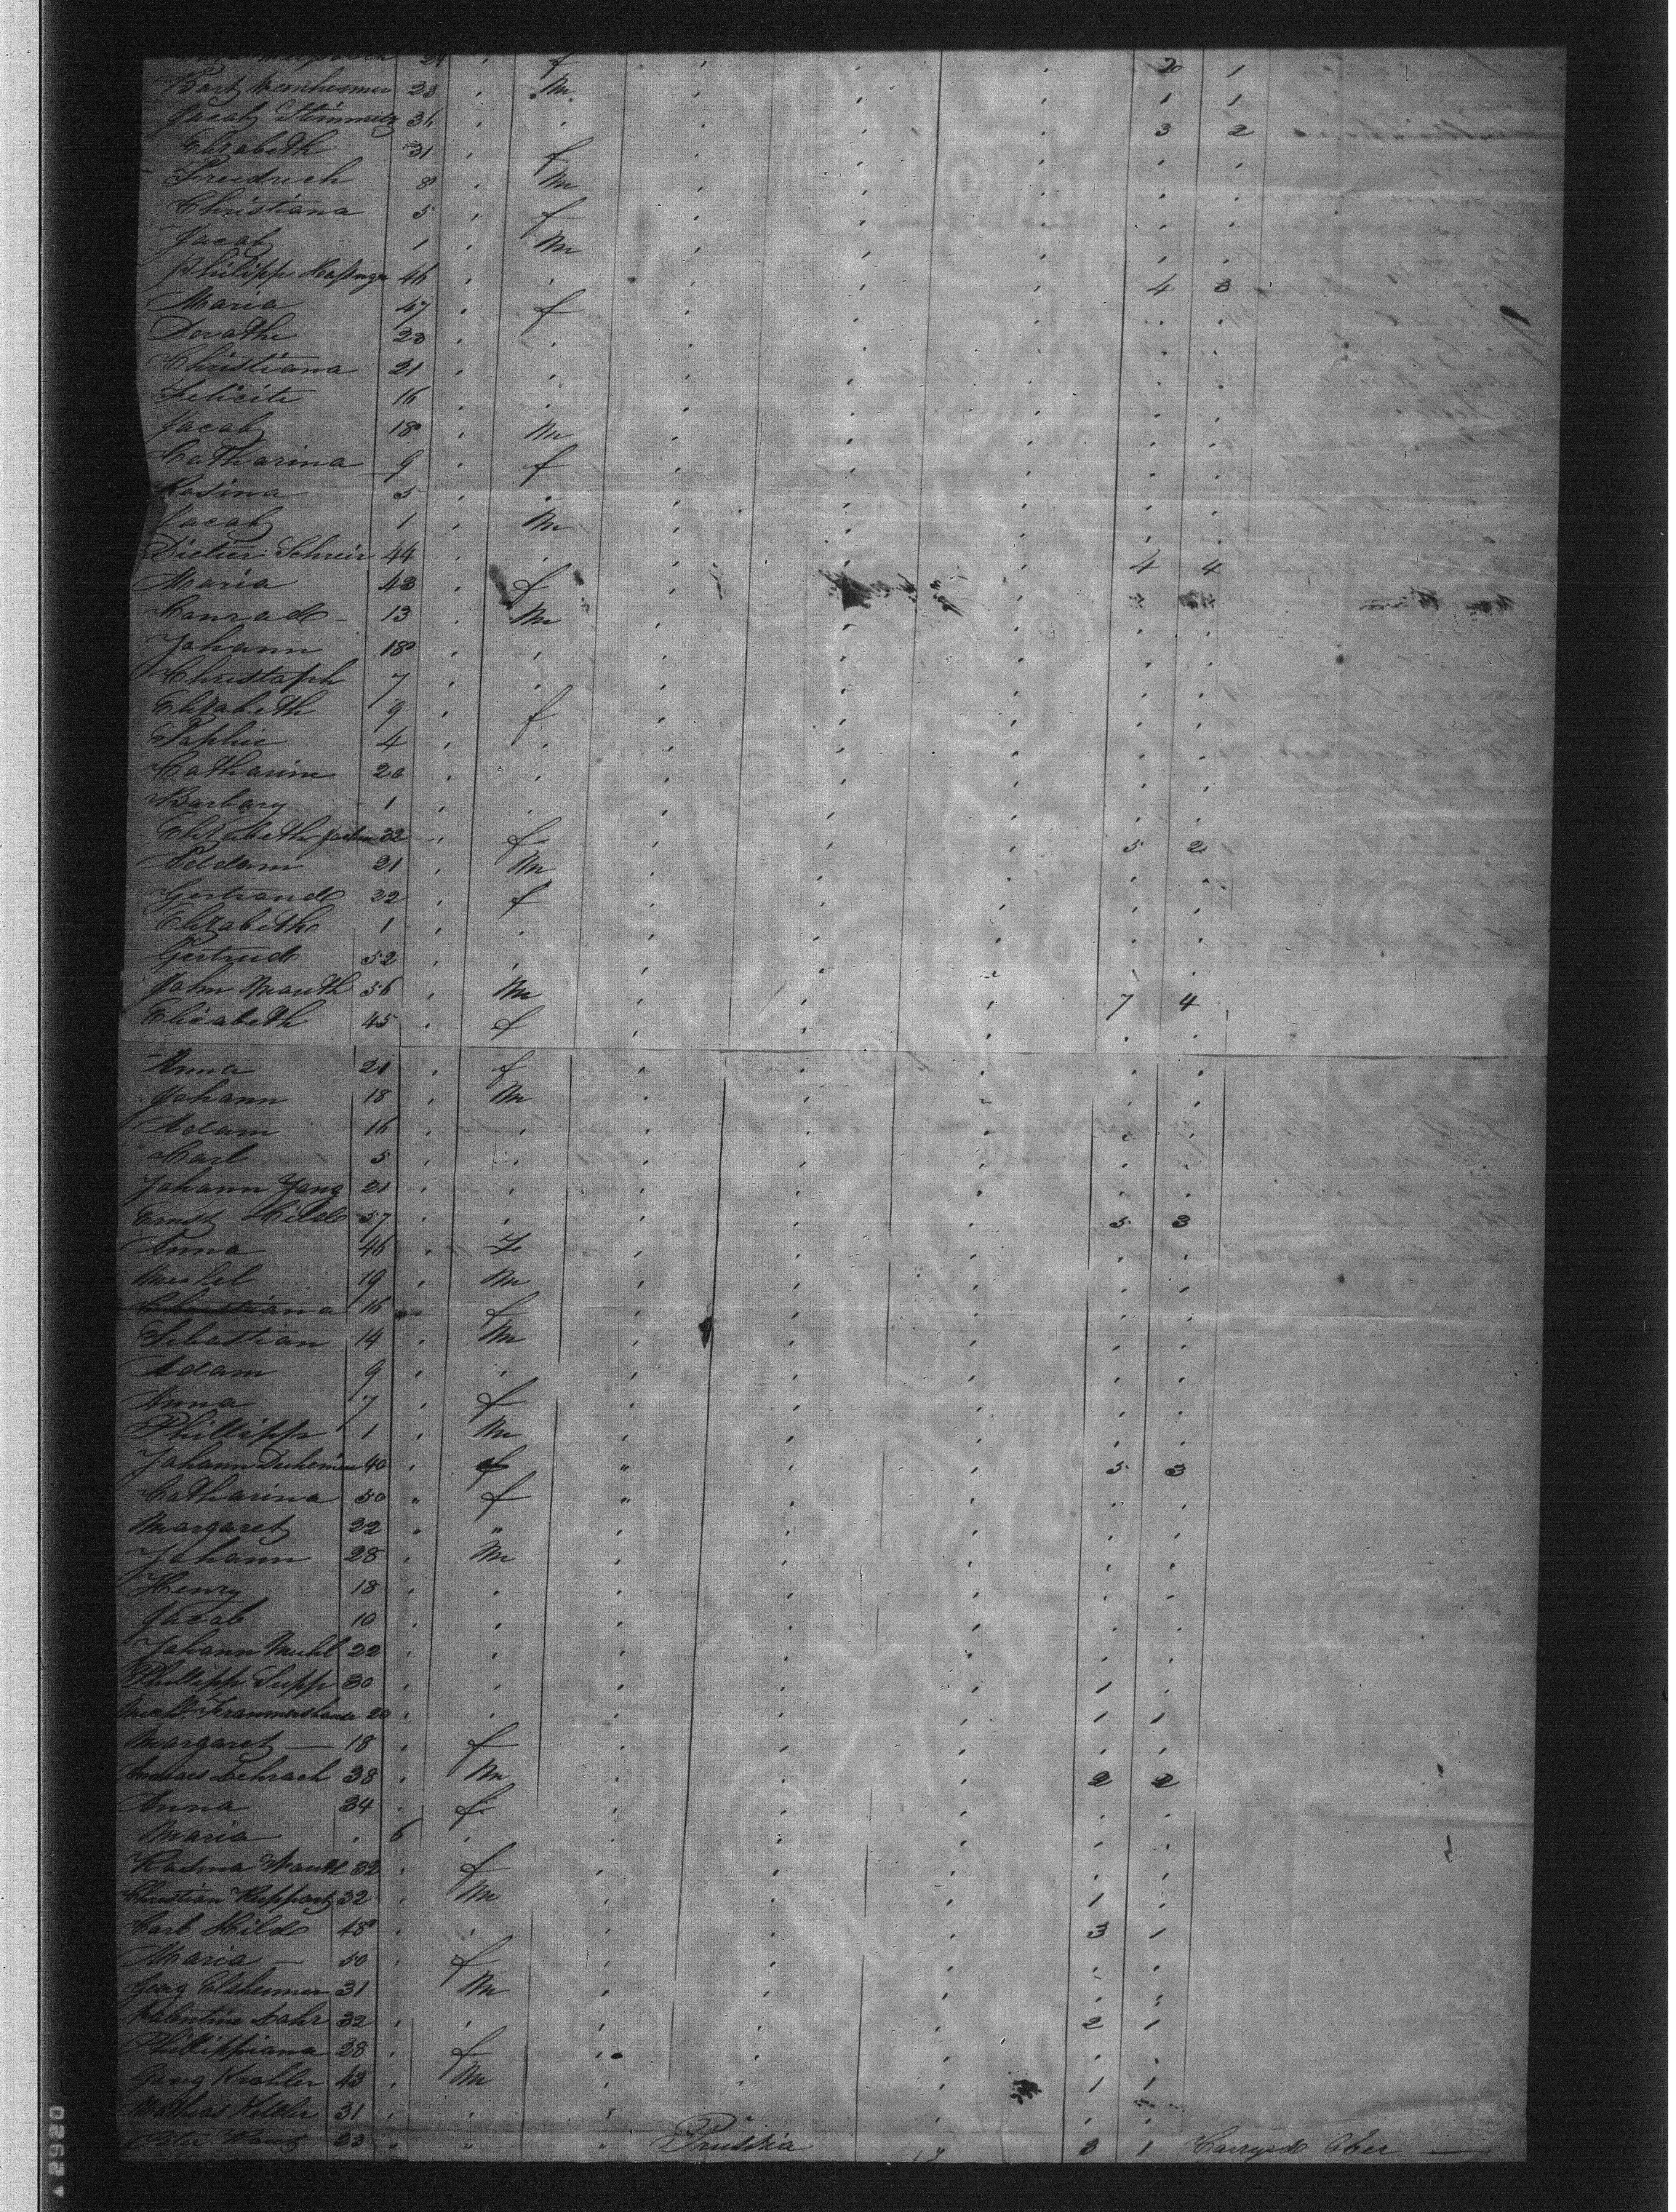 24 f 20 1
Bart 23 M 1 1
Jacob Steinmetz 36 3 2
Elizabeth 31 f
Freidrich 8 M
Christiana 5 f
Jacob 1 M
Philipp 46 4 3
Maria 47 f
Dorathe 23
Christiana 21
Felicite 16
Jacob 18 M
Catharina 9 f
Rosina 5
Jacob 1 M
Dietier Schreir 44 4 4
Maria 43 f
Conrad - 13 M
Johann 18
Christoph 7
Elizabeth 9 f
Sophie 4
Catharine 20
Barbary 1
Elizabeth 32 f 5 2
21 M
Gertraud 22 f
Elizabeth 1
Gertrud 52
John Mauth 56 M 7 4
Elizabeth 45 f
Anna 21 f
Johann 18 M
Adam 16
Carl 5
Johann Jung 21
Ernst Hild 57 5 3
Anna 46 F
Michel 19 M
Christiana 16 f
Sebastian 14 M
Adam 9
Anna 7 f
Phillipp 1 M
Johann 40 " 5 3
Catharina 50 " f "
Margaret 22 "
Johann 28 M
Henry 18
Jacob 10
Johann Muhl 22
Phillipp Supp 30 1
Michl. 20 1 1
Margaret — 18 f
38 M 2 2
Anna 34 f
Maria 6
Rosina Mauth 32 f
Christian Ruppart 32 M 1
Carl Hild 48 3 1
Maria — 50 f
Georg Elsheimer 31 M
Valentine Lahr 32 2 1
Phillippiana 28 f
Georg Krahler 43 M 1 1
Mathias Keller 31
Peter 23 " " " Prussia " 3 1 Carryed Ober —
A2920